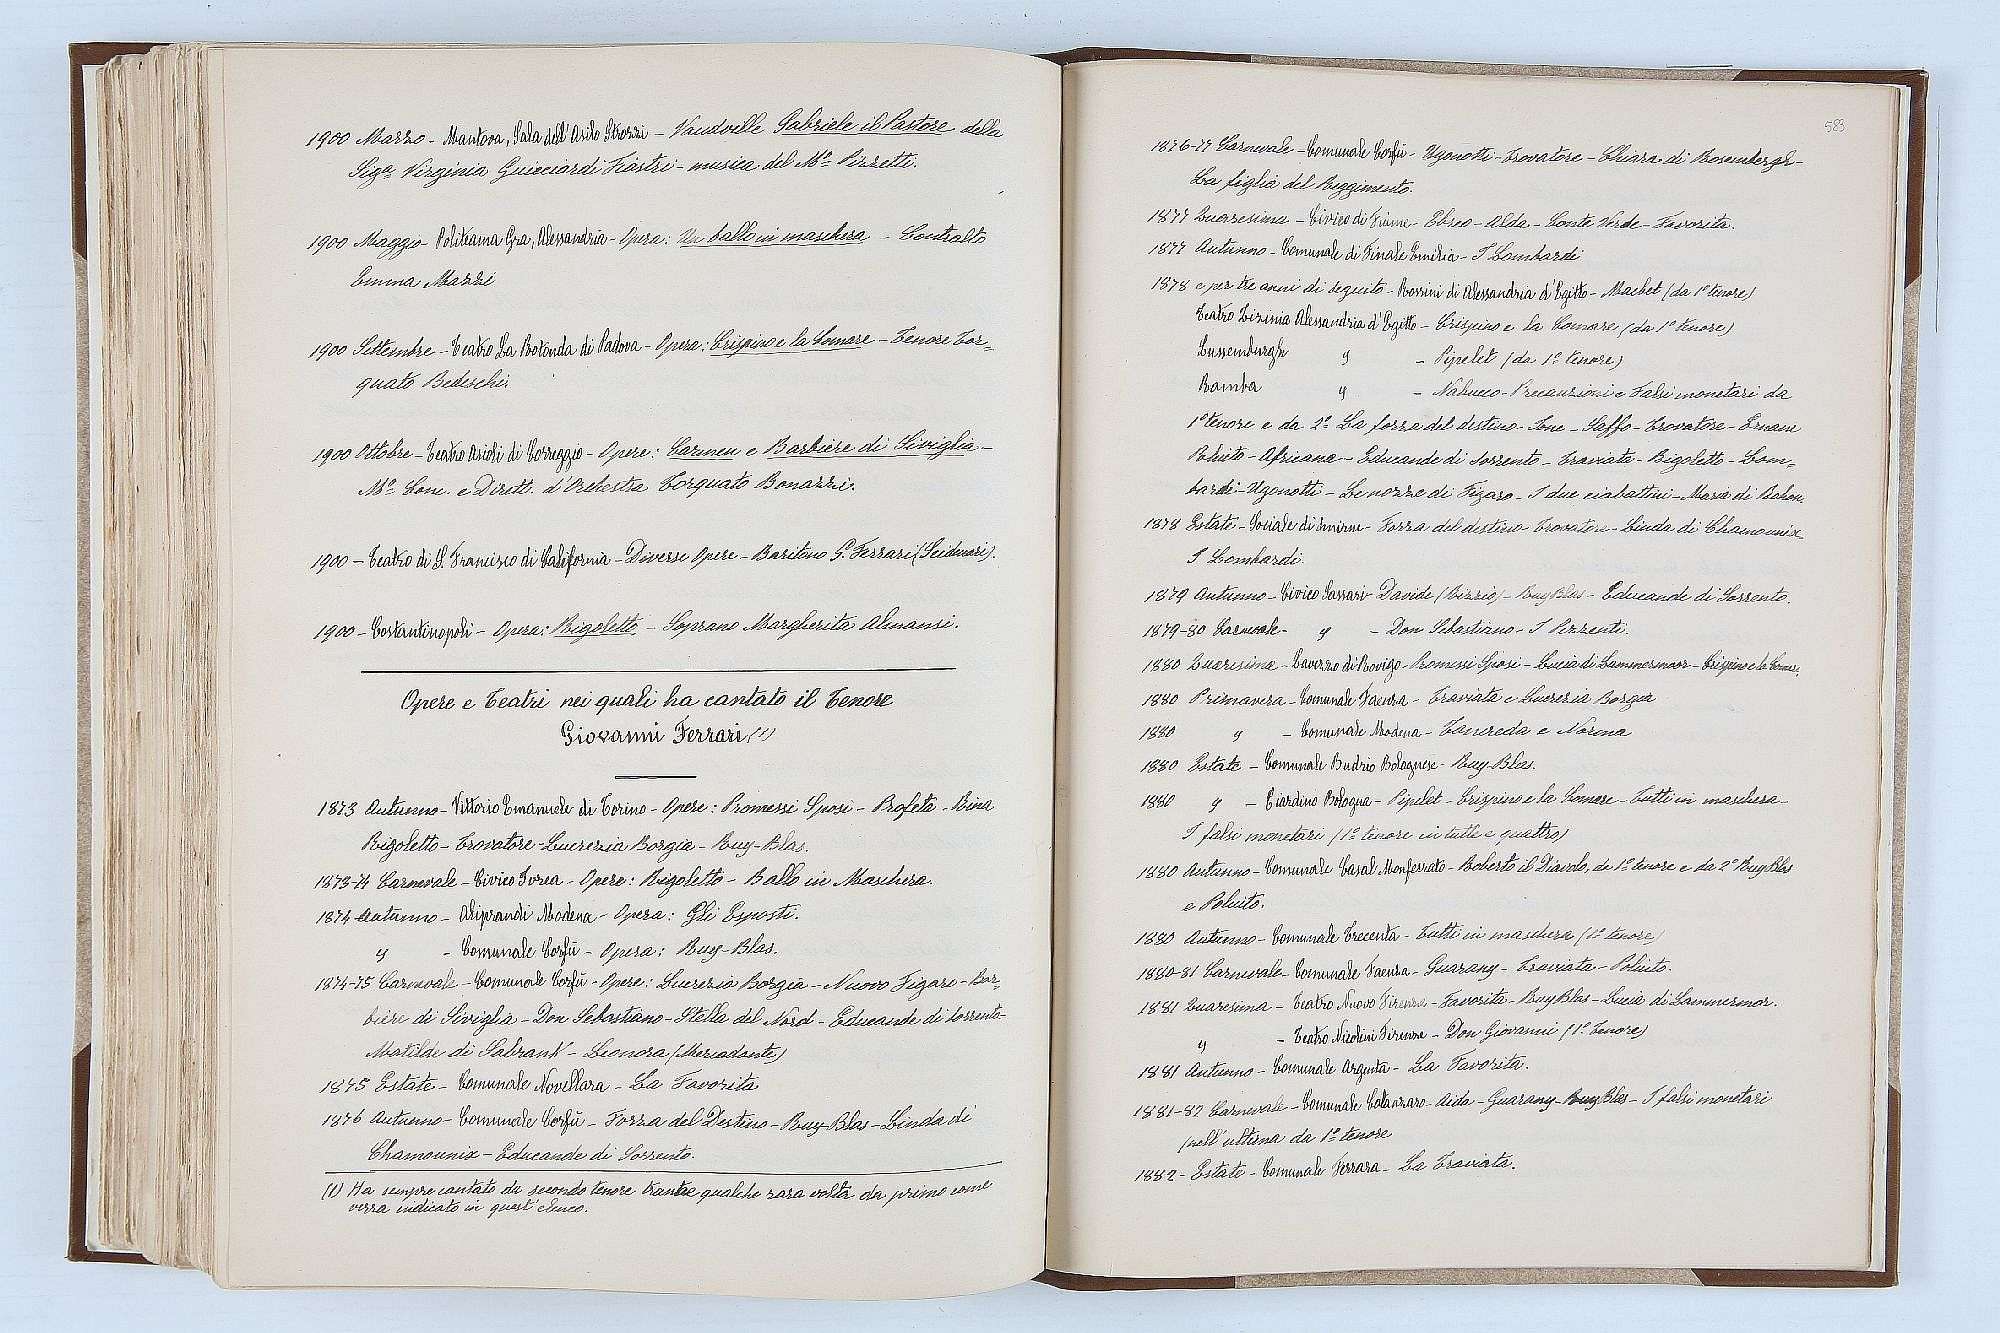 1900 Marzo - Mantova, Sala dell'Asilo Strozzi - Vaudville Gabriele il Pastore della
Siga Virginia Guicciardi Fiastri - musica del Mo Pizzetti.
1900 Maggio - Politeama Gra, Alessandria - Opera: Un ballo in maschera - Contralto
Emma Mazzi
1900 Settembre - Teatro La Rotonda di Padova - Opera: Crispino e la Comare - Tenore Tor-
quato Bedeschi.
1900 Ottobre - Teatro Asioli di Correggio - Opere: Carmen e Barbiere di Siviglia -
Mo Conc. e Dirett. d'Orchestra Torquato Bonazzi.
1900 - Teatro di S. Francisco di California - Diverse Opere - Baritono G. Ferrari (Scidmori).
1900 - Costantinopoli - Opera: Rigoletto - Soprano Margherita Almansi.
Opere e Teatri nei quali ha cantato il Tenore
Giovanni Ferrari (1)
1873 Autunno - Vittorio Emanuele di Torino - Opere: Promessi Sposi - Profeta - Nina
Rigoletto - Trovatore - Lucrezia Borgia - Ruy-Blas.
1873-74 Carnevale - Civico Ivrea - Opere: Rigoletto - Ballo in Maschera.
1874 Autunno - Aliprandi Modena - Opera: Gli Esposti.
" - Comunale Corfù - Opera: Ruy-Blas.
1874-75 Carnevale - Comunale Corfù - Opere: Lucrezia Borgia - Nuovo Figaro - Bar-
biere di Siviglia - Don Sebastiano - Stella del Nord - Educande di Sorrento -
Matilde di Sabrank - Leonora (Mercadante)
1875 Estate - Comunale Novellara - La Favorita
1876 Autunno - Comunale Corfù - Forza del Destino - Ruy-Blas - Linda di
Chamounix - Educande di Sorrento.
(1) Ha sempre cantato da secondo tenore tranne qualche rara volta da primo come
verrà indicato in quest'elenco.
583
1876-77 Carnevale - Comunale Corfù - Ugonotti - Trovatore - Chiara di Rosembergh -
La figlia del Reggimento.
1877 Quaresima - Civico di Fiume - Ebreo - Aida - Conte Verde - Favorita.
1877 Autunno - Comunale di Finale Emilia - I Lombardi
1878 e per tre anni di seguito - Rossini di Alessandria d'Egitto - Macbet (da 1o tenore)
Teatro Zizinia Alessandria d'Egitto - Crispino e la Comare (da 1o tenore)
Lussemburgh " - Pipelet (da 1o tenore)
Ramba " - Nabucco - Precauzioni e Falsi monetari da
1o tenore e da 2o La forza del destino - Jone - Saffo - Trovatore - Ernani
Poliuto - Africana - Educande di Sorrento - Traviata - Rigoletto - Lom-
bardi - Ugonotti - Le nozze di Figaro - I due ciabattini - Maria di Rohan
1878 Estate - Sociale di Smirne - Forza del destino Trovatore - Linda di Chamounix -
I Lombardi.
1879 Autunno - Civico Sassari - Davide (Rizzio) - Ruy Blas - Educande di Sorrento.
1879-80 Carnevale - " - Don Sebastiano - I Pezzenti.
1880 Quaresima - Lavezzo di Rovigo - Promessi Sposi - Lucia di Lammermoor - Crispino e la Comar.
1880 Primavera - Comunale Faenza - Traviata e Lucrezia Borgia
1880 " - Comunale Modena - Tancreda e Norma
1880 Estate - Comunale Budrio Bolognese - Ruy Blas.
1880 " - Giardino Bologna - Pipelet - Crispino e la Comare - Tutti in maschera -
I falsi monetari (1o tenore in tutte e quattro)
1880 Autunno - Comunale Casal Monferrato - Roberto il Diavolo, da 1o tenore e da 2o Ruy Blas
e Poliuto.
1880 Autunno - Comunale Trecenta - Tutti in maschera (1o tenore)
1880-81 Carnevale - Comunale Faenza - Guarany - Traviata - Poliuto.
1881 Quaresima - Teatro Nuovo Firenze - Favorita - Ruy Blas - Lucia di Lammermor.
" - Teatro Nicolini Firenze - Don Giovanni (1o tenore)
1881 Autunno - Comunale Argenta - La Favorita.
1881-82 Carnevale - Comunale Catanzaro - Aida - Guarany - Ruy Blas - I falsi monetari
(nell'ultima da 1o tenore
1882 - Estate - Comunale Ferrara - La Traviata.